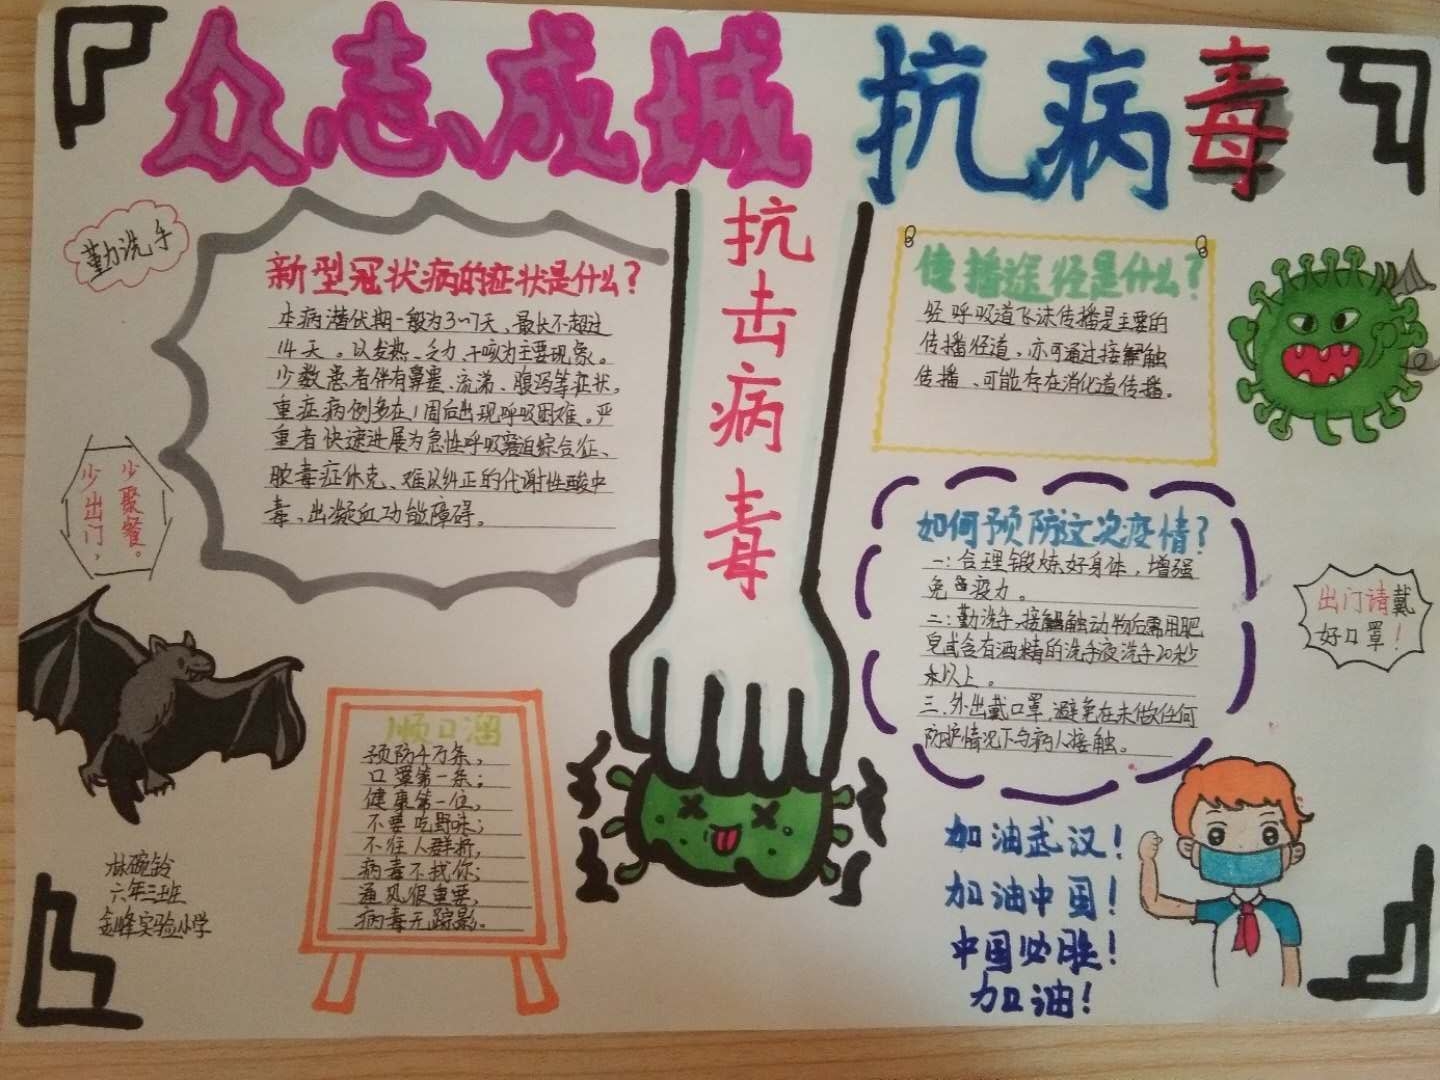 众志成城 抗病毒
勤洗手
新型冠状病的症状是什么?
本病潜伏期一般为3~7天，最长不超过
14天。以发热、乏力、干咳为主要现象。
少数患者伴有鼻塞、流涕、腹泻等症状。
重症病例多在1周后出现呼吸困难。严
重者快速进展为急性呼吸窘迫综合征、
脓毒症休克、难以纠正的代谢性酸中
毒、出凝血功能障碍。
少聚餐。
少出门，
抗击病毒
传播途径是什么?
经呼吸道飞沫传播是主要的
传播径道、亦可通过接触
传播、可能存在消化道传播。
如何预防这次疫情?
一:合理锻炼好身体，增强
免疫力。
二:勤洗手、接触动物后需用肥
皂或含有酒精的洗手液洗手20秒
以上。
三、外出戴口罩，避免在未做任何
防护情况下与病人接触。
出门请戴
好口罩!
顺口溜
预防千万条，
口罩第一条;
健康第一位，
不要吃野味;
不往人群挤，
病毒不找你;
通风很重要，
病毒无踪影。
加油武汉!
加油中国!
中国必胜!
加油!
林碗铃
六年三班
金峰实验小学